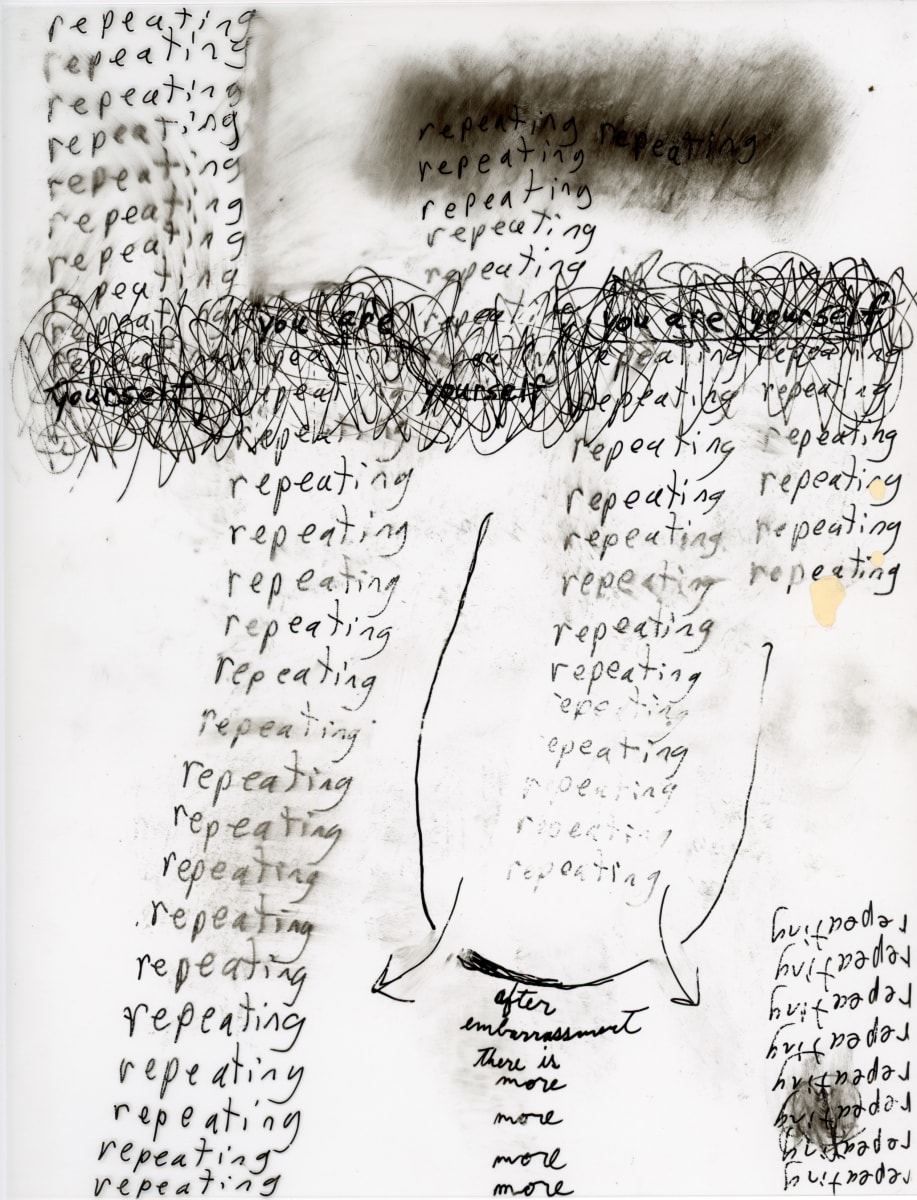 repeating
repeating
repeating
repeating
repeating
repeating
repeating
repeating
yourself
you are
repeating
repeating
repeating
repeating
repeating
repeating
repeating
repeating
repeating
repeating
repeating
repeating
repeating
repeating
repeating
repeating
repeating
repeating
repeating repeating
repeating
repeating
repeating
repeating
repeating
yourself
you are yourself
repeating
repeating
repeating
repeating
repeating
repeating
repeating
repeating
repeating
repeating
repeating
repeating
repeating
repeating
repeating
repeating
repeating
repeating
repeating
after
embarrassment
there is
more
more
more
more
repeating
repeating
repeating
repeating
repeating
repeating
repeating
repeating